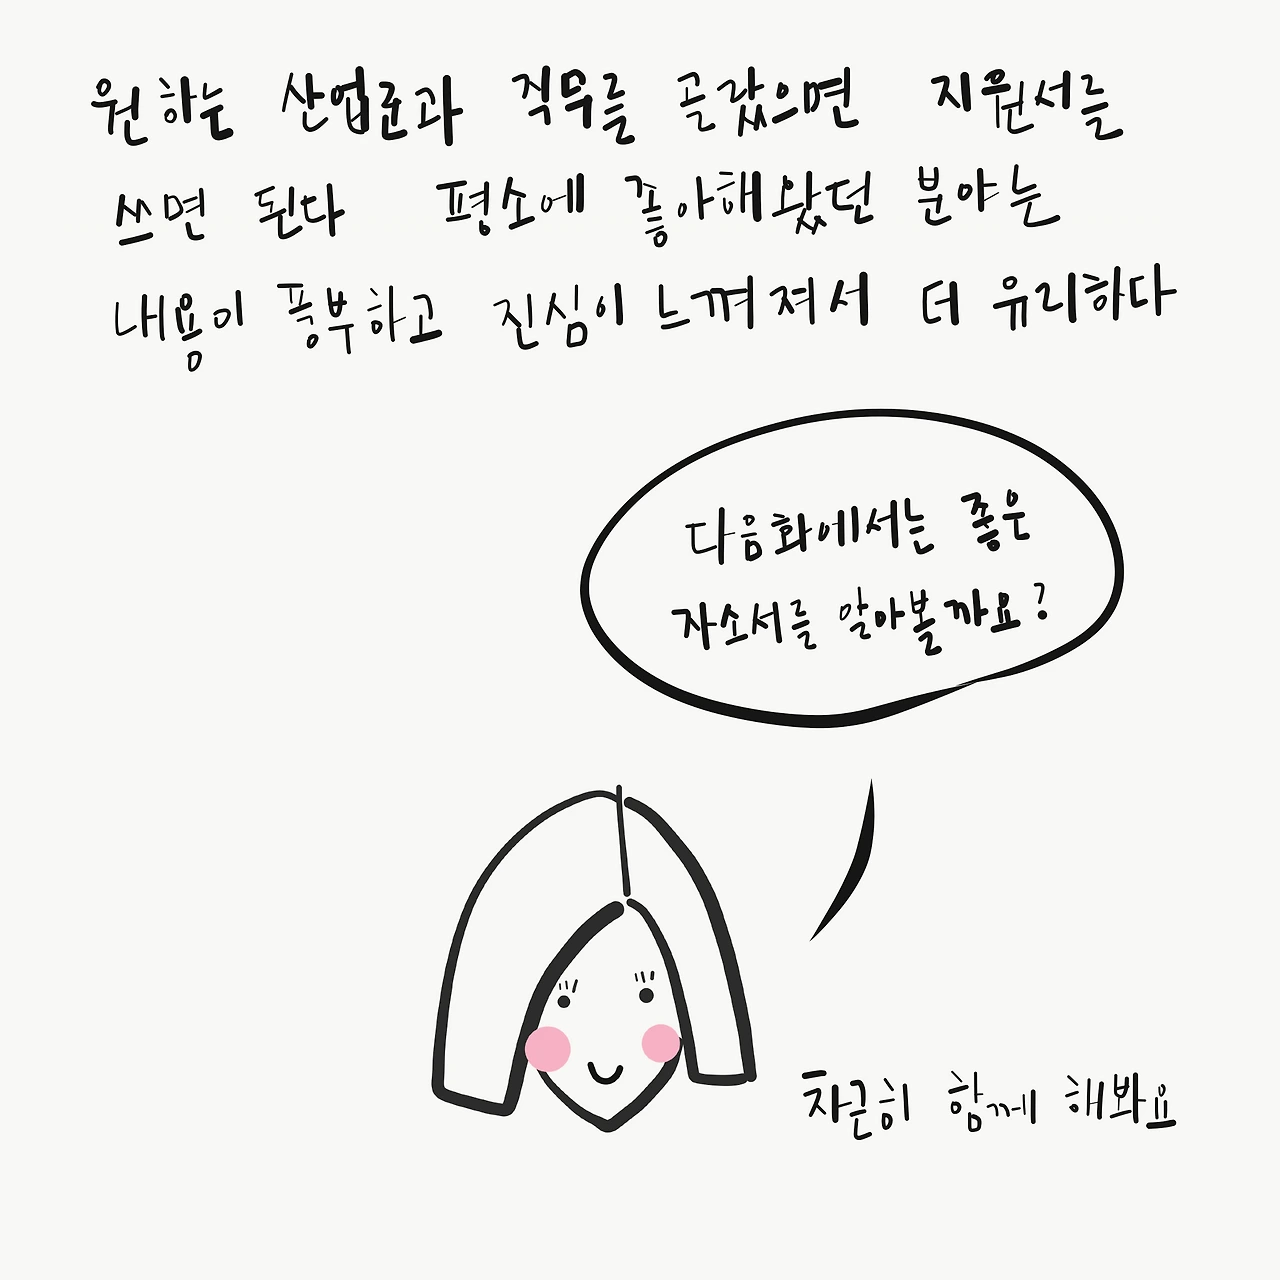 원하는 산업군과 직무를 골랐으면 지원서를
쓰면 된다 평소에 좋아해왔던 분야는
내용이 풍부하고 진심이 느껴져서 더 유리하다
다음화에서는 좋은
자소서를 알아볼까요?
차근히 함께 해봐요